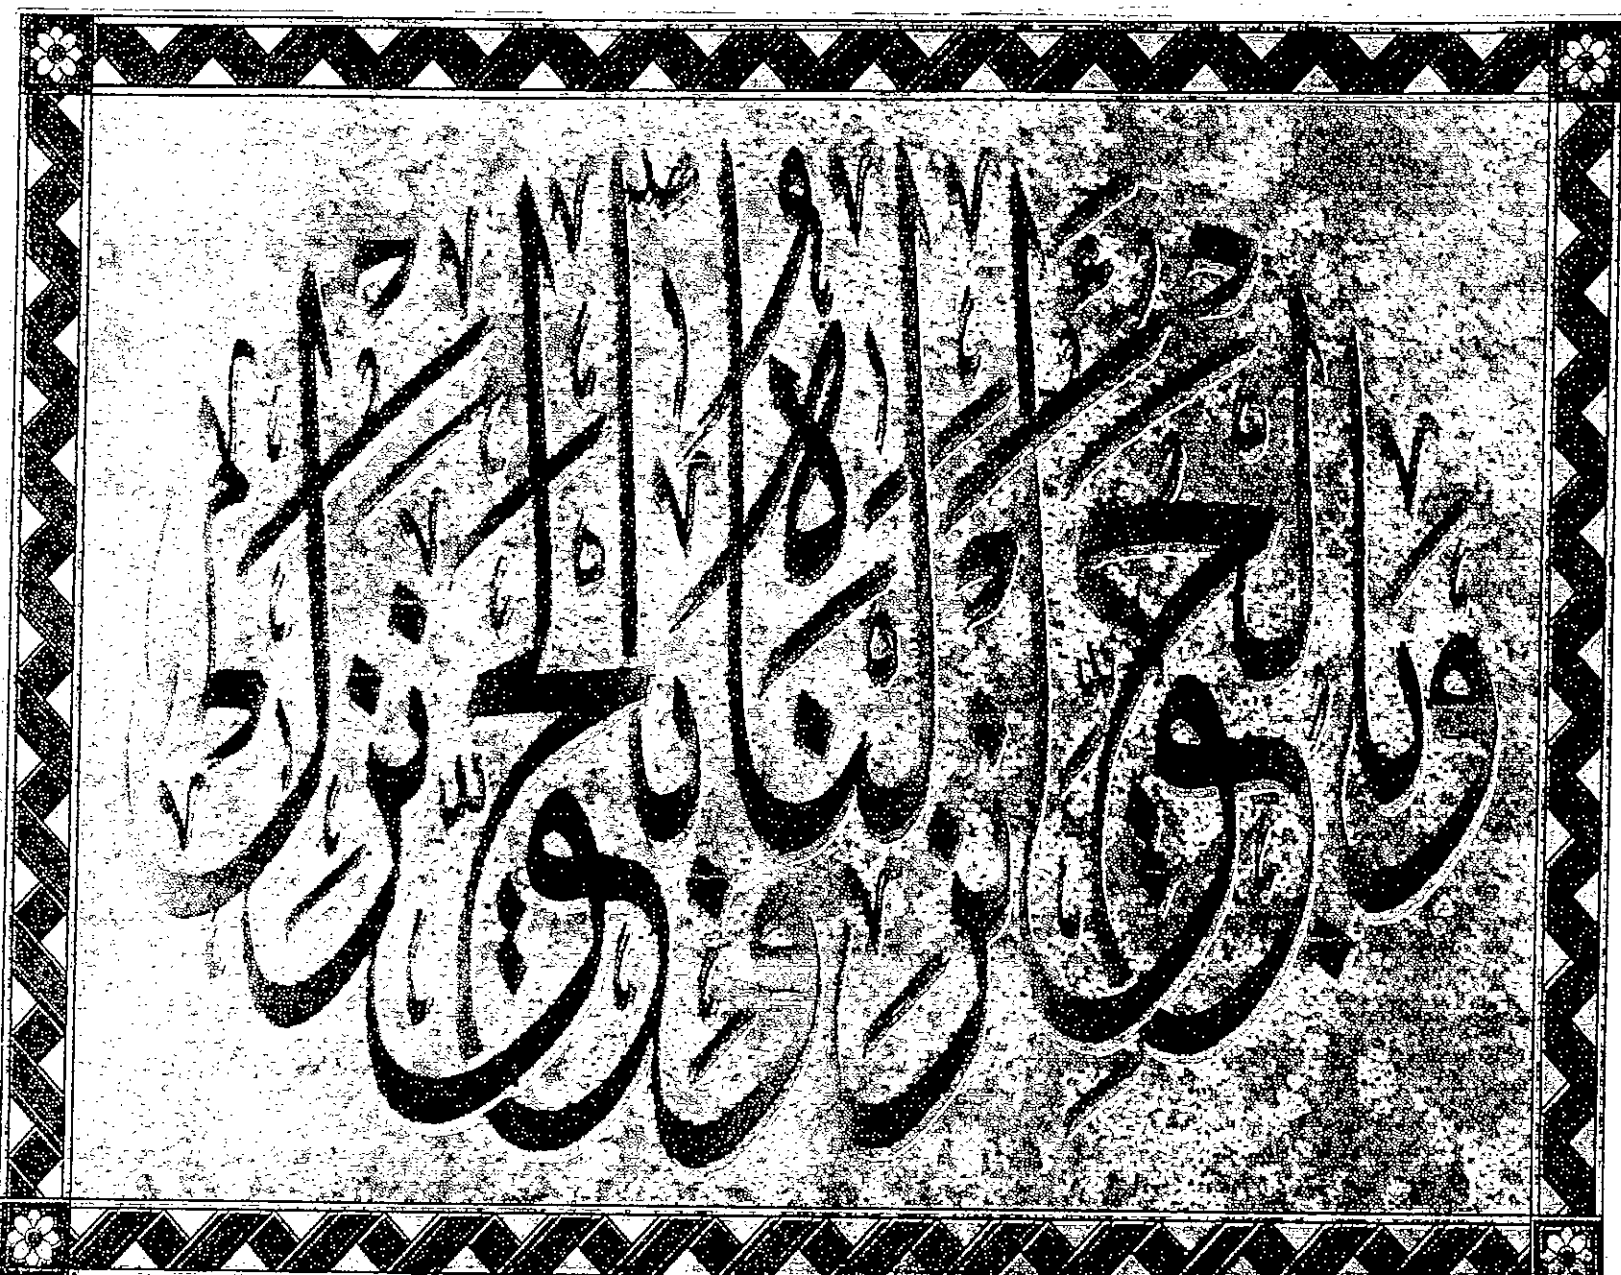 وبالحق أنزلناه وبالحق نزل